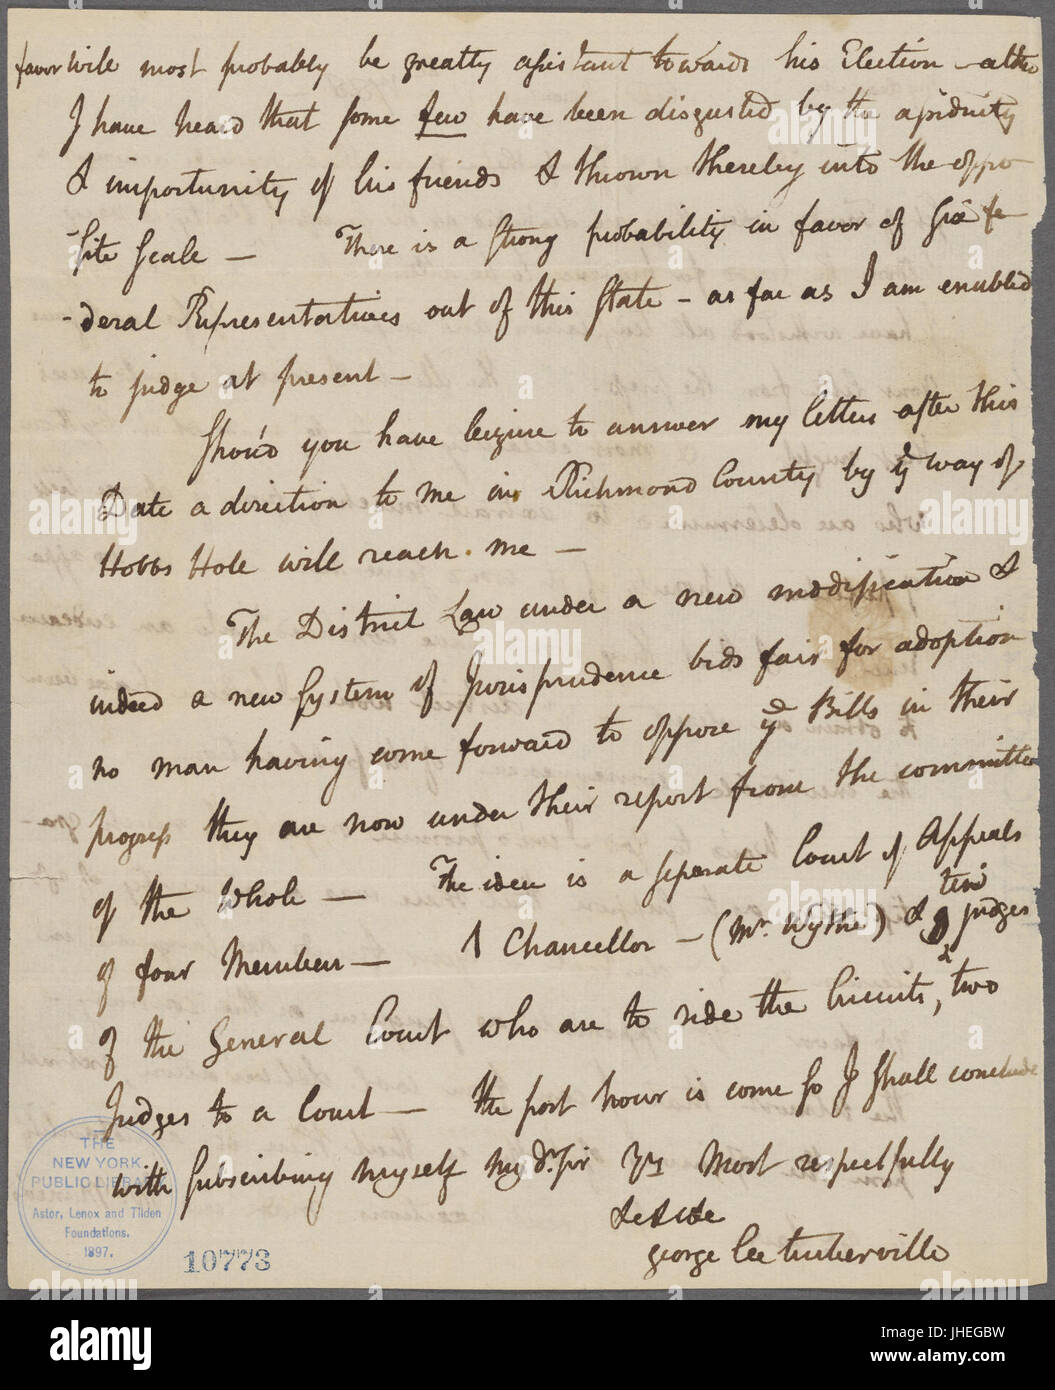 favor will most probably be greatly assistant towards his Election - altho
I have heard that some few have been disgusted by the assiduity
& importunity of his friends & thrown thereby into the oppo
site Scale — There is a strong probability in favor of Six fe
-deral Representatives out of this State - as far as I am enabled
to judge at present —
Shou'd you have leizure to answer my letters after this
Date a direction to me in Richmond County by ye way of
Hobbs Hole will reach me —
The District Law under a new modification &
indeed a new System of Jurisprudence bids fair for adoption
no man having come forward to oppose ye Bills in their
progress they are now under their report from the committee
of the Whole — The idea is a seperate Court of Appeals
of four Members — 1 Chancellor — (Mr. Wythe) & ten judges
of the General Court who are to ride the Circuits, two
Judges to a Court — the post hour is come so I shall conclude
with Subscribing myself my Dr. Sir Yrs Most respectfully
&c &c &c
george Lee turberville
THE
NEW YORK
PUBLIC LIBRARY
Astor, Lenox and Tilden
Foundations.
1897.
10773
alamy
Image ID: JHEGBW
www.alamy.com